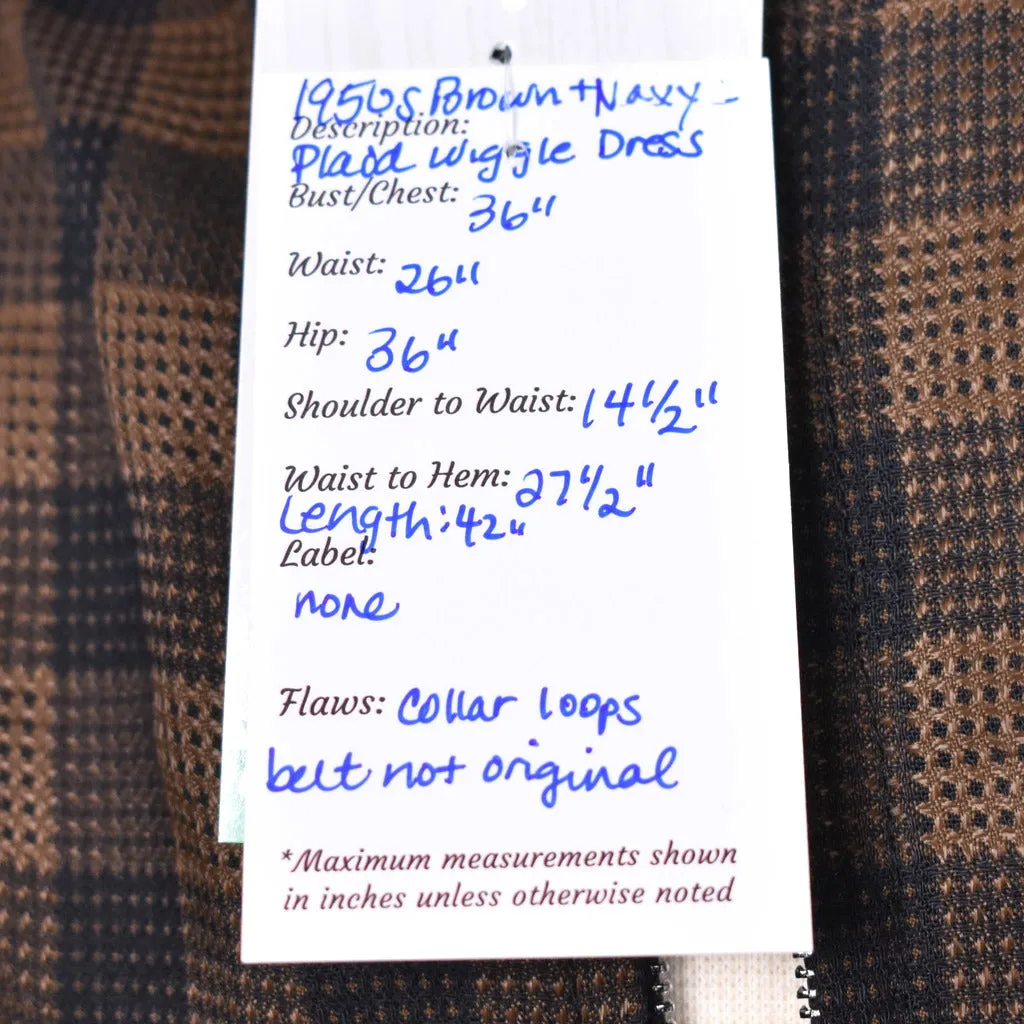 1950s Brown + Navy -
Description:
Plaid Wiggle Dress
Bust/Chest: 36"
Waist: 26"
Hip: 36"
Shoulder to Waist: 14 1/2"
Waist to Hem: 27 1/2"
Length: 42"
Label:
none
Flaws: collar loops
belt not original
*Maximum measurements shown
in inches unless otherwise noted